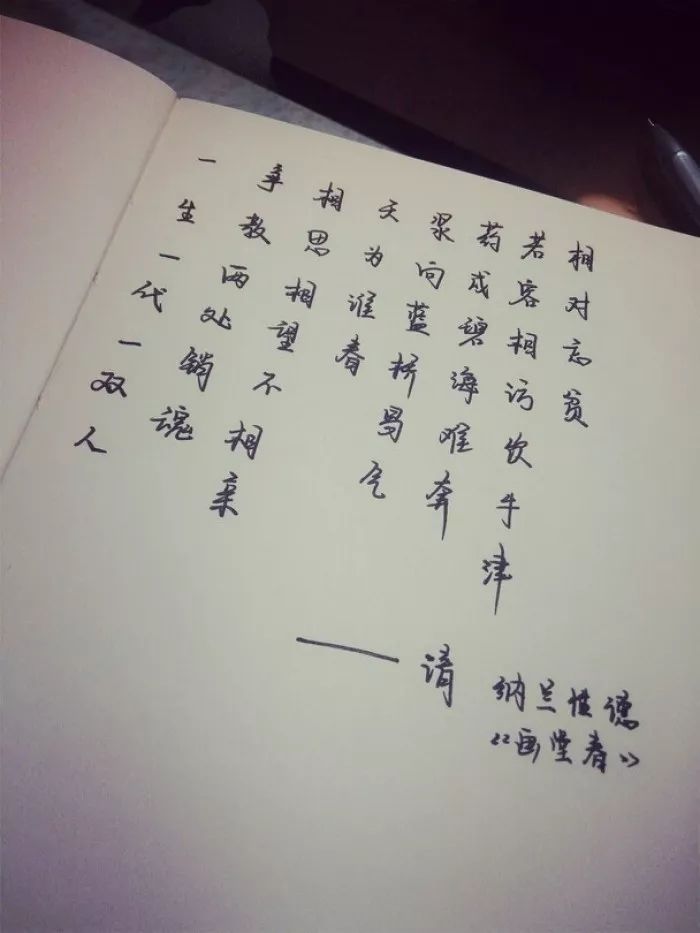 一生一代一双人
争教两处销魂
相思相望不相亲
天为谁春
浆向蓝桥易乞
药成碧海难奔
若容相访饮牛津
相对忘贫
——清 纳兰性德
《画堂春》